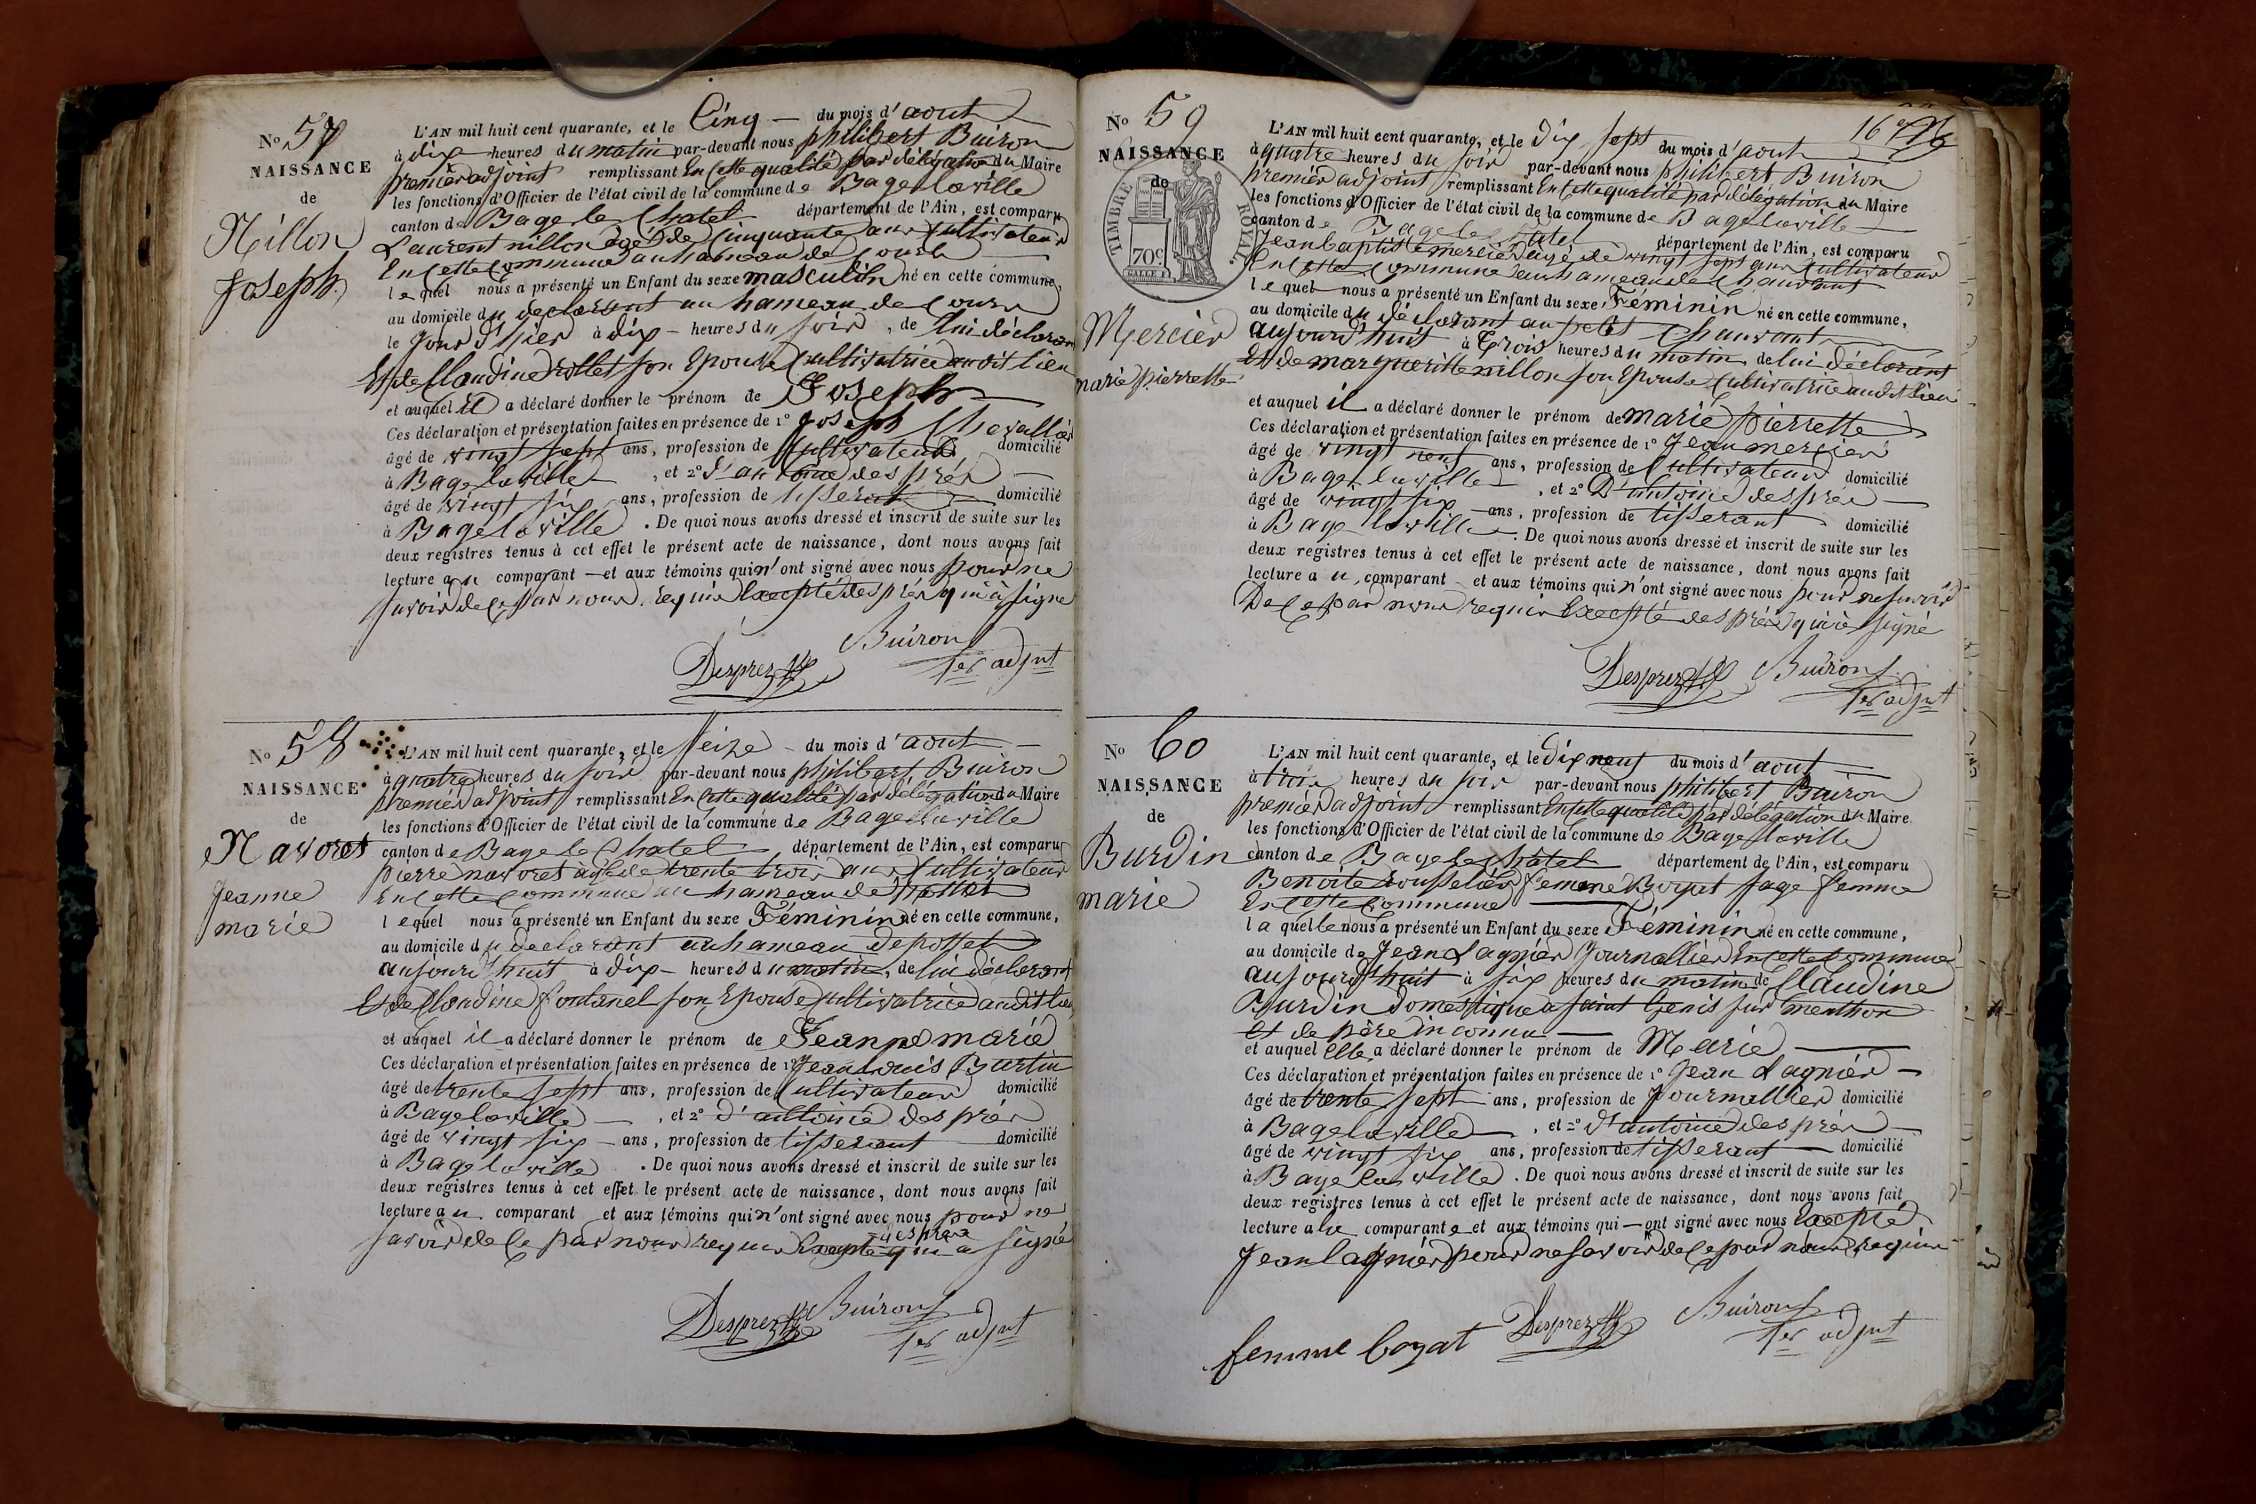 No 57
NAISSANCE
de
Nillon
Joseph
L'AN mil huit cent quarante, et le Cinq — du mois d'aout
à dix heures du matin par-devant nous philibert Buiron
premier adjoint remplissant En cette qualité par délégation du Maire
les fonctions d'Officier de l'état civil de la commune de Bagé la ville
canton de Bagé le Chatel département de l'Ain, est comparu
Laurent nillon âgé de cinquante ans Cultivateur
En cette commune au hameau de
lequel nous a présenté un Enfant du sexe masculin né en cette commune,
au domicile du declarant au hameau de
le Jour d'hier à dix — heures du soir, de lui déclarant
Et de Claudine rollet son Epouse Cultivatrice audit lieu
et auquel il a déclaré donner le prénom de Joseph
Ces déclaration et présentation faites en présence de 1° Joseph Chevallier
âgé de vingt sept ans, profession de Cultivateur domicilié
à Bagé la ville , et 2° d'antoine des prés
âgé de vingt six ans, profession de tisserant domicilié
à Bagé la ville . De quoi nous avons dressé et inscrit de suite sur les
deux registres tenus à cet effet le présent acte de naissance, dont nous avons fait
lecture au comparant — et aux témoins qui n'ont signé avec nous pour ne
savoir de ce par nous requis Excepté des prés qui à signé
Desprez Buiron
1er adjnt
No 58
NAISSANCE
de
Navoret
Jeanne
marie
L'AN mil huit cent quarante, et le Seize — du mois d'aout —
à quatre heures du soir par-devant nous philibert Buiron
premier adjoint remplissant En cette qualité par délégation du Maire
les fonctions d'Officier de l'état civil de la commune de Bagé la ville
canton de Bagé le Chatel département de l'Ain, est comparu
pierre navoret âgé de trente trois ans Cultivateur
En cette commune au hameau de
lequel nous a présenté un Enfant du sexe Féminin né en cette commune,
au domicile du declarant au hameau de
aujourd'huit à dix — heures du matin, de lui déclarant
Et de Claudine fontanel son Epouse Cultivatrice audit lieu
et auquel il a déclaré donner le prénom de Jeanne marie
Ces déclaration et présentation faites en présence de 1° Jean Louis Burtin
âgé de trente sept ans, profession de Cultivateur domicilié
à Bagé la ville — , et 2° d'antoine des prés
âgé de vingt six — ans, profession de tisserant domicilié
à Bagé la ville . De quoi nous avons dressé et inscrit de suite sur les
deux registres tenus à cet effet le présent acte de naissance, dont nous avons fait
lecture au comparant et aux témoins qui n'ont signé avec nous pour ne
savoir de ce par nous requis Excepté des prés qui à signé
Desprez Buiron
1er adjnt
16
No 59
NAISSANCE
de
TIMBRE ROYAL
70c
Mercier
marie pierrette
L'AN mil huit cent quarante, et le dix sept du mois d'aout
à quatre heures du soir par-devant nous philibert Buiron
premier adjoint remplissant En cette qualité par délégation du Maire
les fonctions d'Officier de l'état civil de la commune de Bagé la ville
canton de Bagé le Châtel département de l'Ain, est comparu
Jean baptiste mercier âgé de vingt sept ans Cultivateur
En cette commune au hameau de Chauvant
lequel nous a présenté un Enfant du sexe Féminin né en cette commune,
au domicile du déclarant au petit Chauvant
aujourd'huit à trois heures du matin de lui déclarant
Et de marguerite nillon son Epouse Cultivatrice audit lieu
et auquel il a déclaré donner le prénom de marie pierrette
Ces déclaration et présentation faites en présence de 1° Jean mercier
âgé de vingt neuf ans, profession de Cultivateur domicilié
à Bagé la ville , et 2° D'antoine des prés —
âgé de vingt six — ans, profession de tisserant domicilié
à Bagé la ville . De quoi nous avons dressé et inscrit de suite sur les
deux registres tenus à cet effet le présent acte de naissance, dont nous avons fait
lecture au comparant et aux témoins qui n'ont signé avec nous pour ne savoir
De ce par nous requis Excepté des prés qui à signé
Desprez Buiron
1er adjnt
No 60
NAISSANCE
de
Burdin
marie
L'AN mil huit cent quarante, et le dix neuf du mois d'aout
à trois heures du soir par-devant nous philibert Buiron
premier adjoint remplissant En cette qualité par délégation du Maire
les fonctions d'Officier de l'état civil de la commune de Bagé la ville
canton de Bagé le Châtel département de l'Ain, est comparu
Benoite rousselier femme Boyat sage femme
En cette commune
laquelle nous a présenté un Enfant du sexe Féminin né en cette commune,
au domicile de Jean Lagnier Journallier En cette commune
aujourd'huit à six heures du matin de Claudine
Burdin domestique a saint Genis sur menthon
et de père inconnu —
et auquel elle a déclaré donner le prénom de Marie
Ces déclaration et présentation faites en présence de 1° Jean Lagnier —
âgé de trente sept ans, profession de Journallier domicilié
à Bagé la ville , et 2° d'antoine des prés —
âgé de vingt six ans, profession de tisserant — domicilié
à Bagé la ville . De quoi nous avons dressé et inscrit de suite sur les
deux registres tenus à cet effet le présent acte de naissance, dont nous avons fait
lecture a la comparante et aux témoins qui — ont signé avec nous Excepté
Jean lagnier pour ne savoir de ce par nous requis
femme boyat Desprez Buiron
1er adjnt